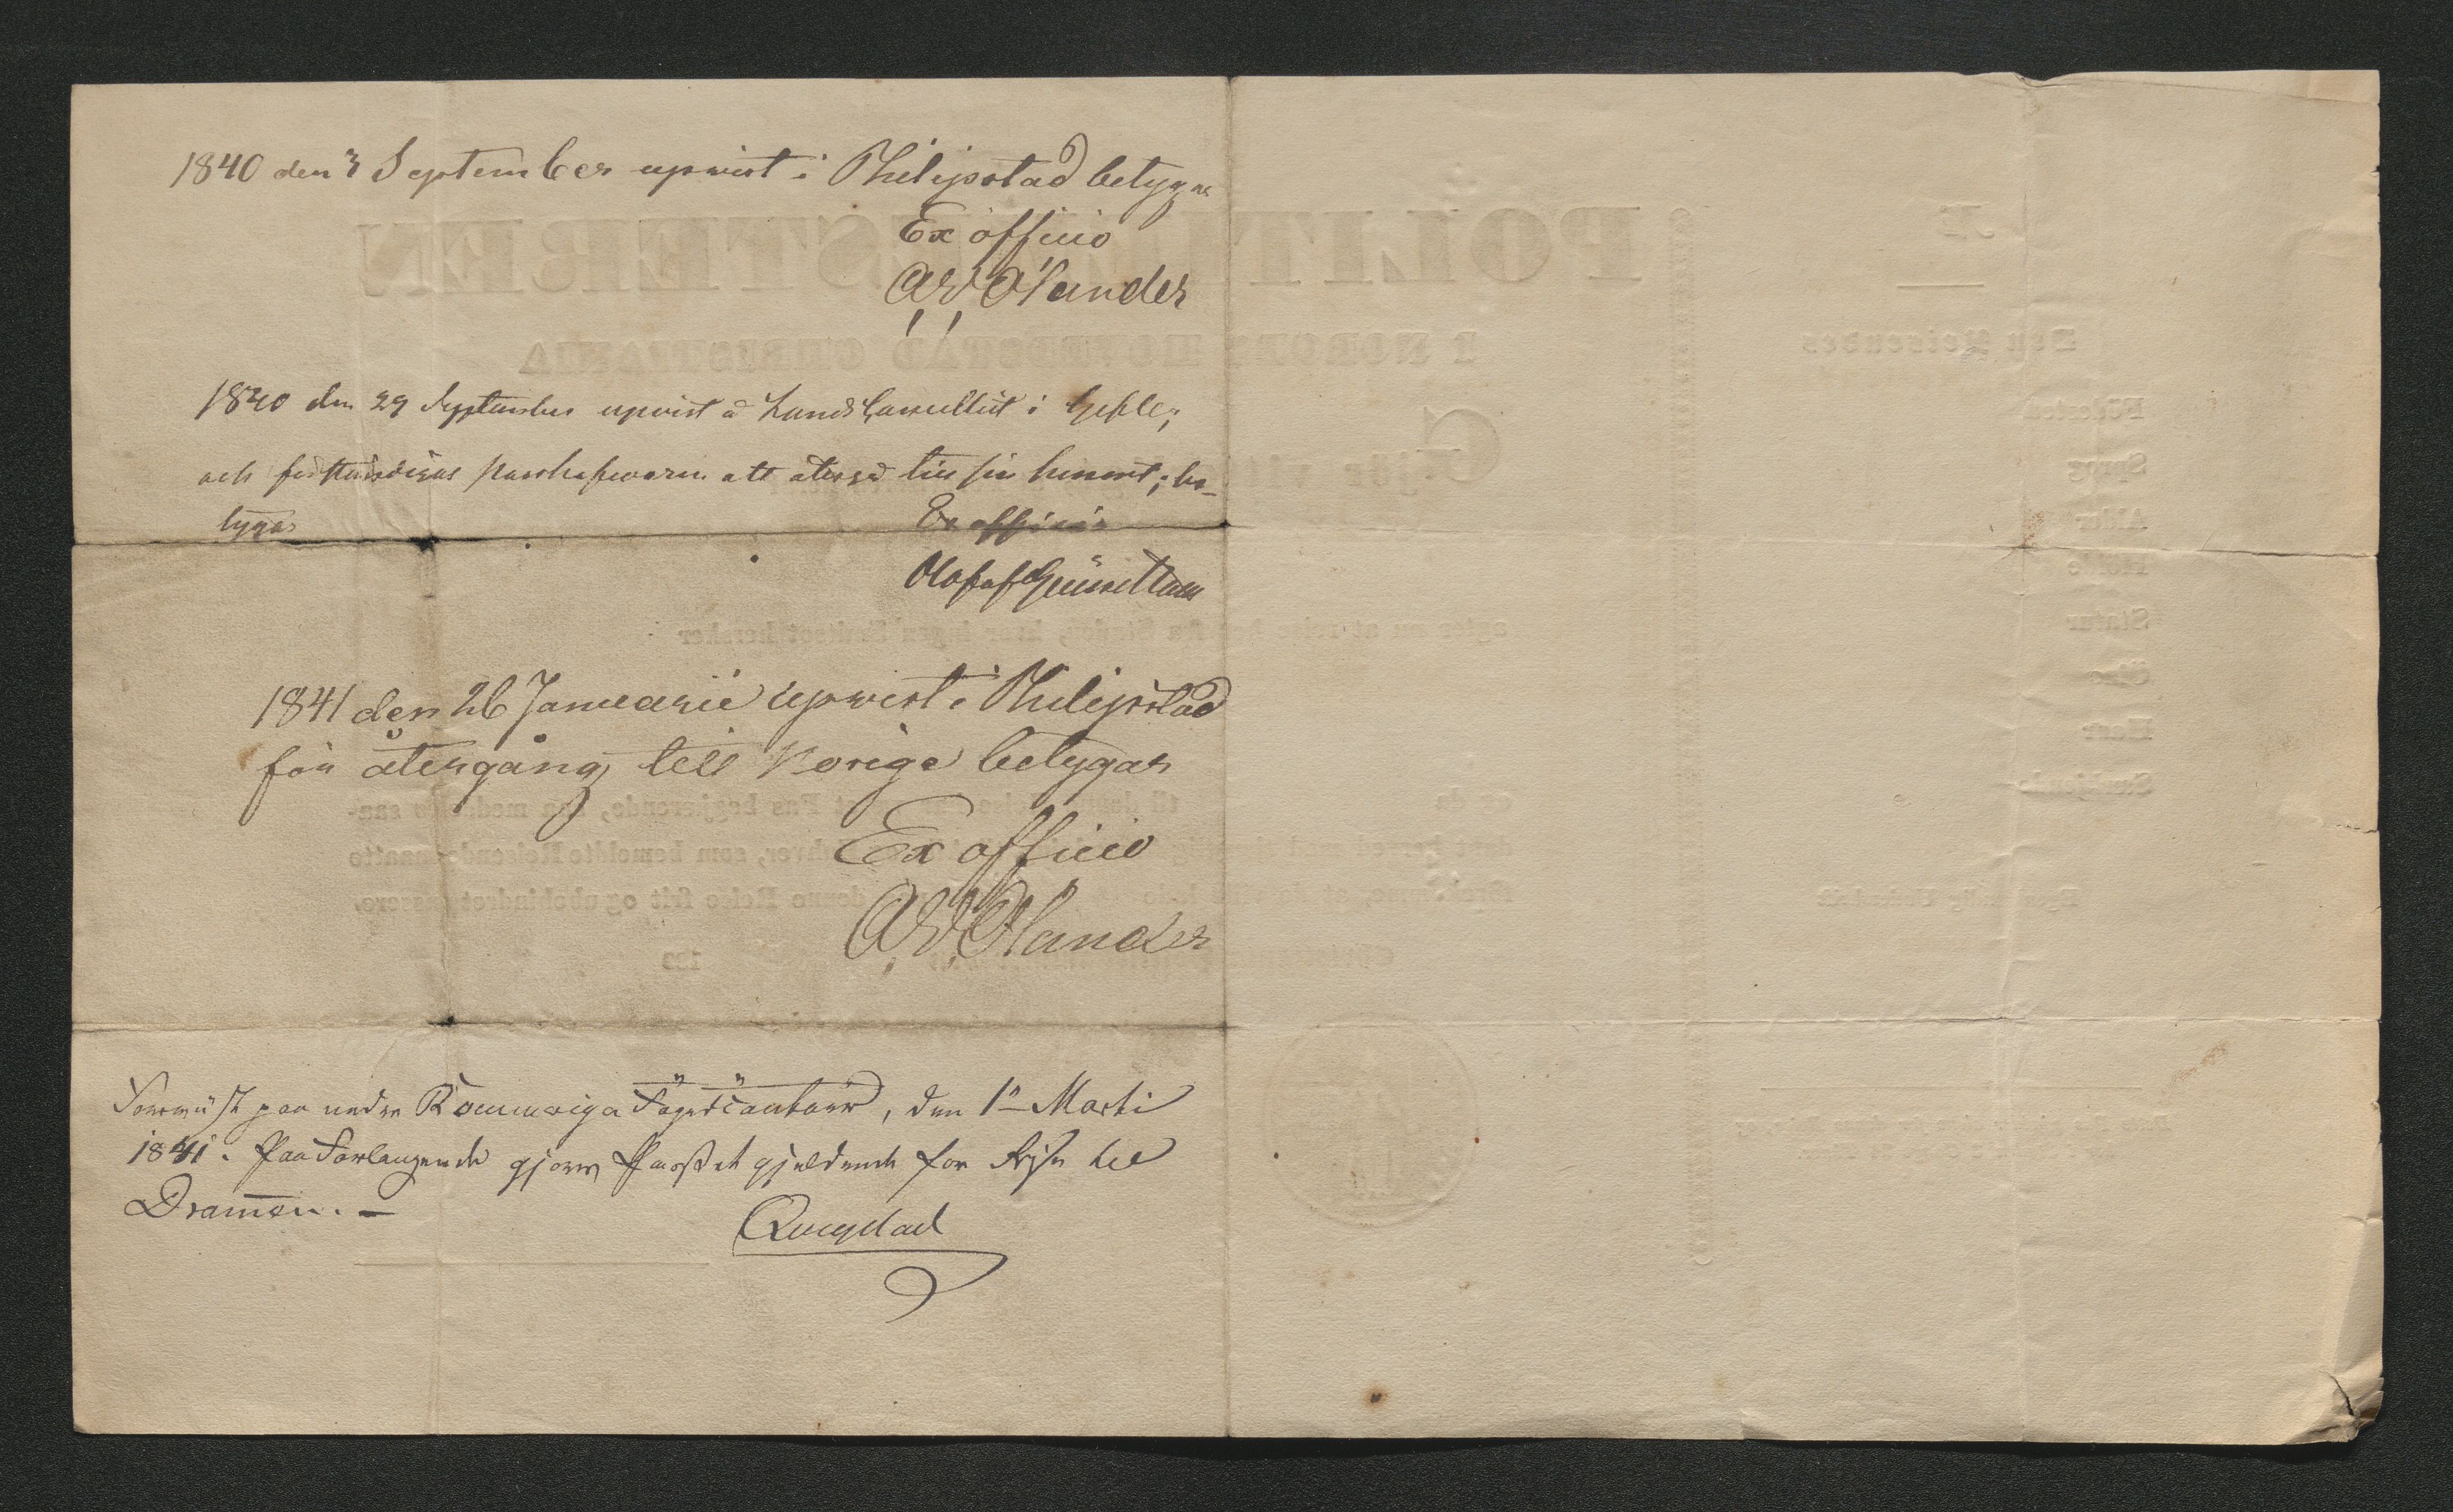 1840 den 3 September upvist i Philipstad betygas
Ex officio
A. W. Ölander
1840 den 29 September upvist å Landscancelliet i Gefle;
och passhafvaren att återgå till sin hemort; be-
tygas
Ex officio
Olof af
1841 den 26 Januarii upvist i Philipstad
för återgång till Norige betygar
Ex officio
A. W. Ölander
Foreviist paa nedre Rommerige Fogedcontoir, den 1ste Marti
1841. Paa Forlangende gjøres Passet gjeldende for Rejse til
Dramen. —
Qvigstad